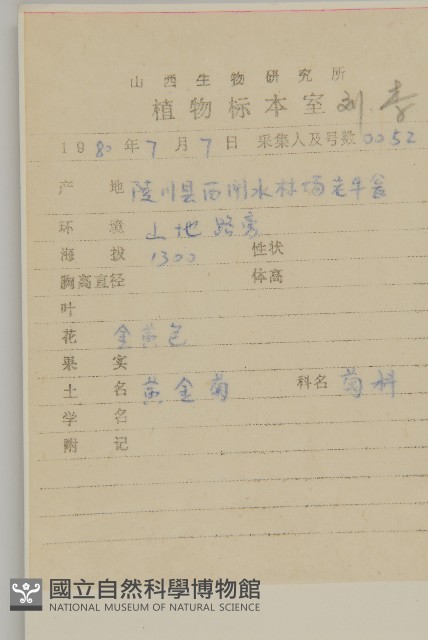 山西生物研究所
植物标本室 刘 李
1980年7月7日 采集人及号数0052
产 地 陵川县西闸水林场老牛岔
环 境 山地路旁
海 拔 1300 性状
胸高直径 体高
叶
花 金黄色
果 实
土 名 黄金菊 科名 菊科
学 名
附 记
國立自然科學博物館
NATIONAL MUSEUM OF NATURAL SCIENCE